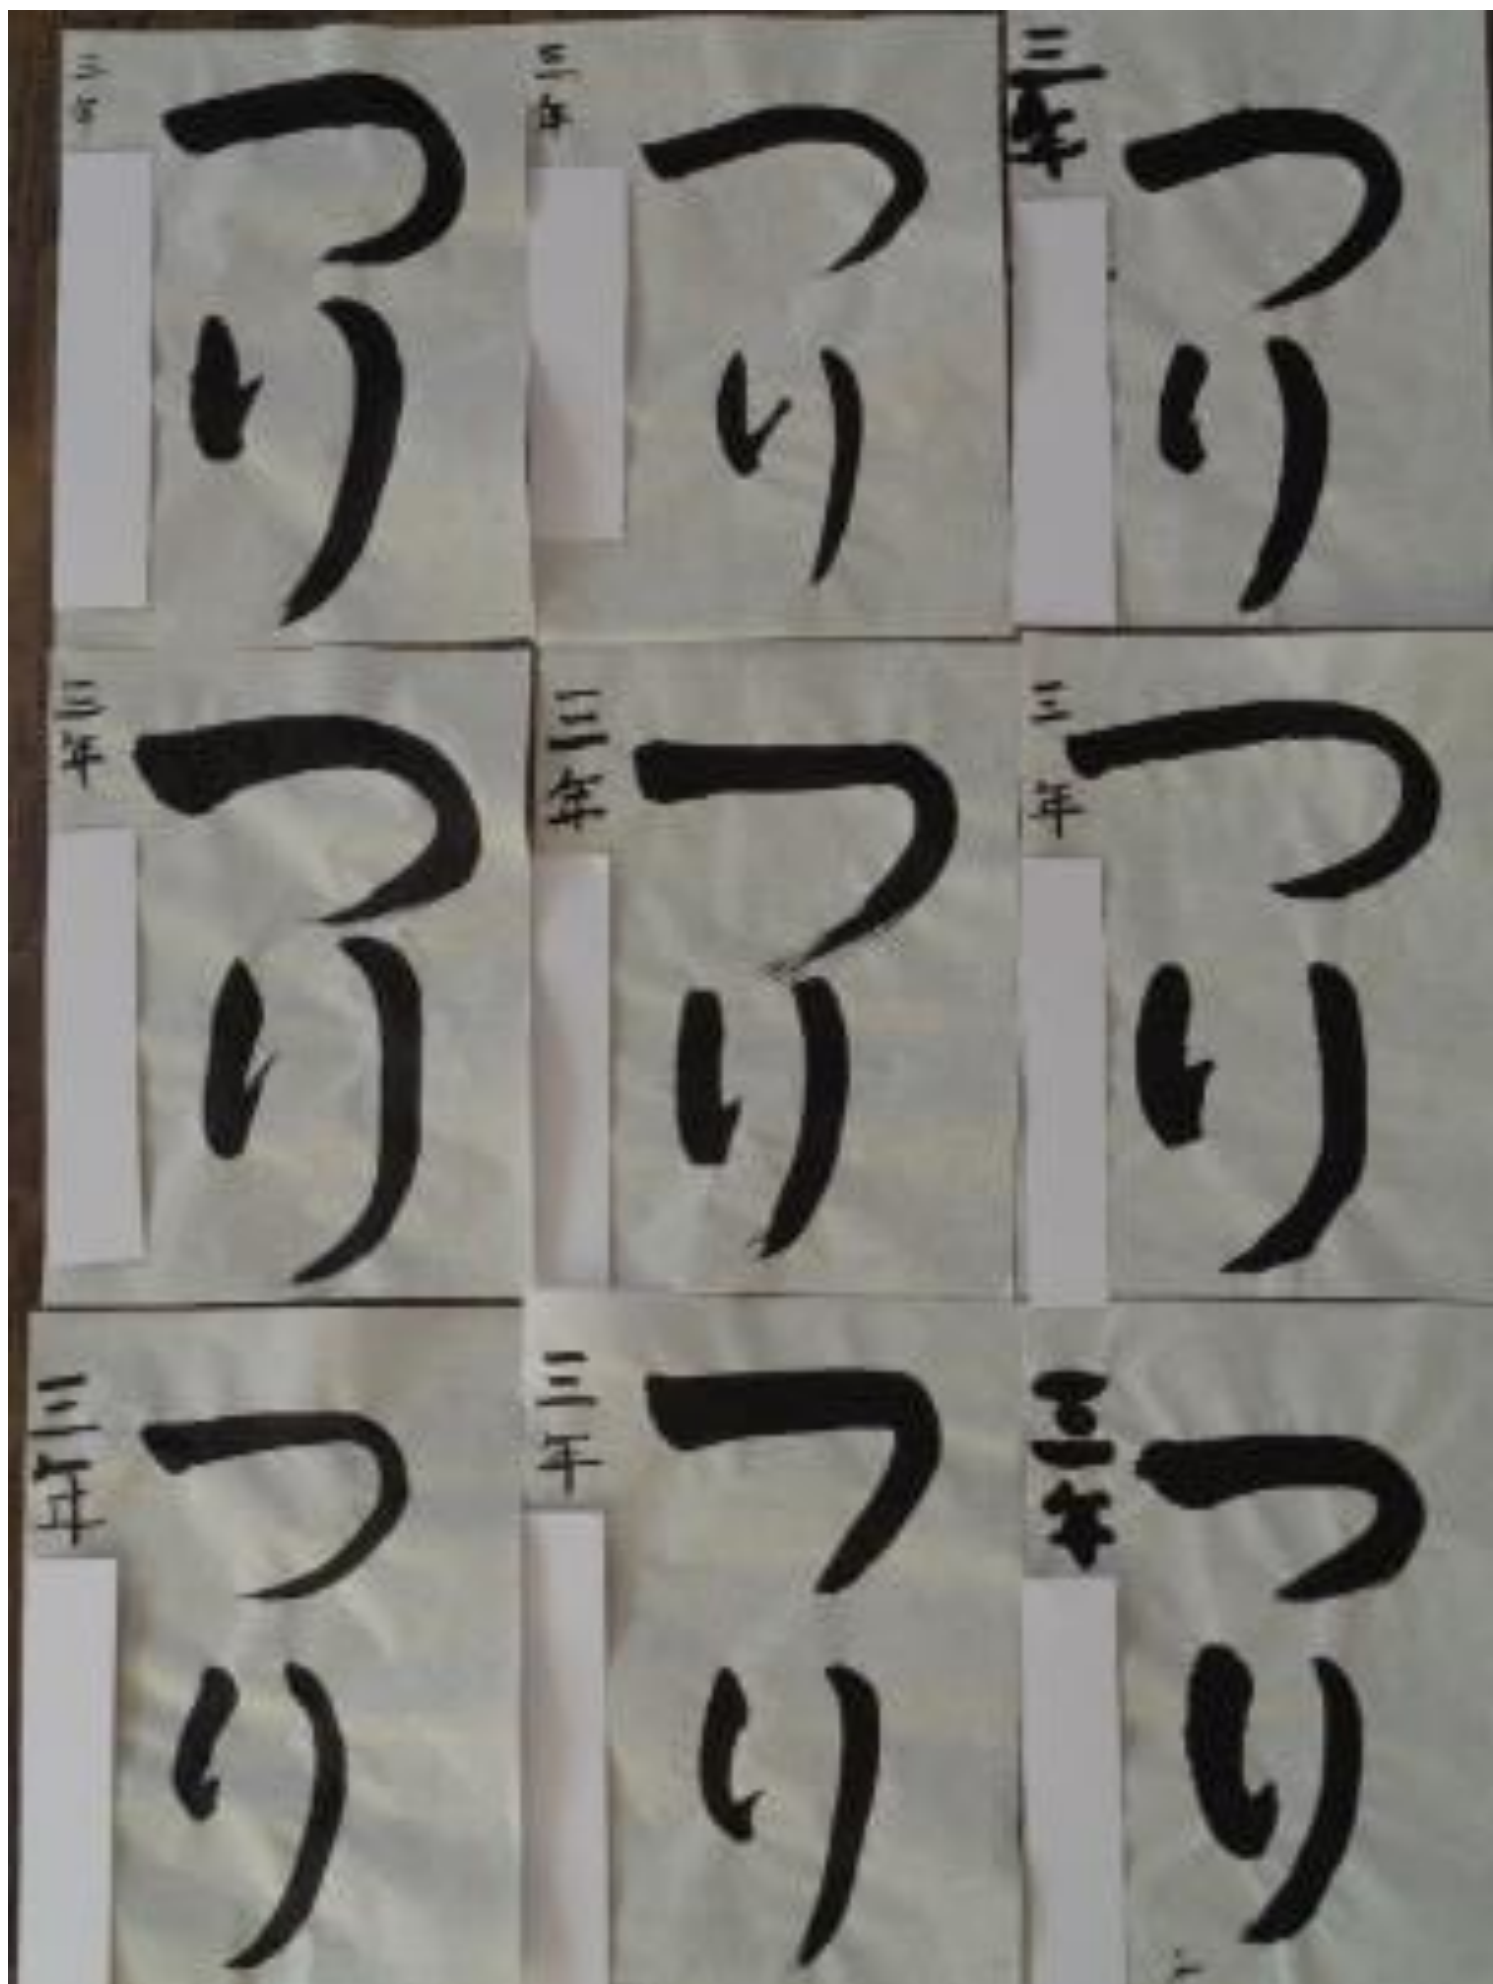 三年
つり
三年
つり
三年
つり
三年
つり
三年
つり
三年
つり
三年
つり
三年
つり
三年
つり